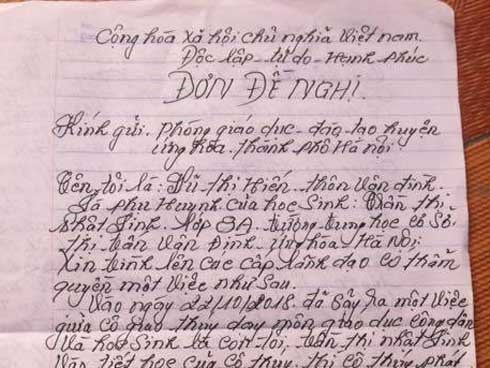 Cộng hòa xã hội chủ nghĩa Việt nam.
Độc lập - tự do - Hạnh phúc
ĐƠN ĐỀ NGHỊ.
Kính gửi. Phòng giáo dục - đào tạo huyện
ứng Hòa. thành phố Hà nội
Tên tôi là: Vũ thị Hiến. thôn Vân đình.
Là phụ Huynh của học Sinh: Trần thị
nhất Linh. lớp 8A. trường trung học cơ Sở
thị trấn Vân Đình. ứng hòa Hà Nội.
Xin trình lên các cấp lãnh đạo có thẩm
quyền một việc như Sau.
Vào ngày 22/10/2018. đã Sảy ra một việc
giữa cô giáo thúy dạy môn giáo dục công dân
và học Sinh là con tôi. Trần thị nhất Linh
tiết học của cô thúy. thì cô thúy phát